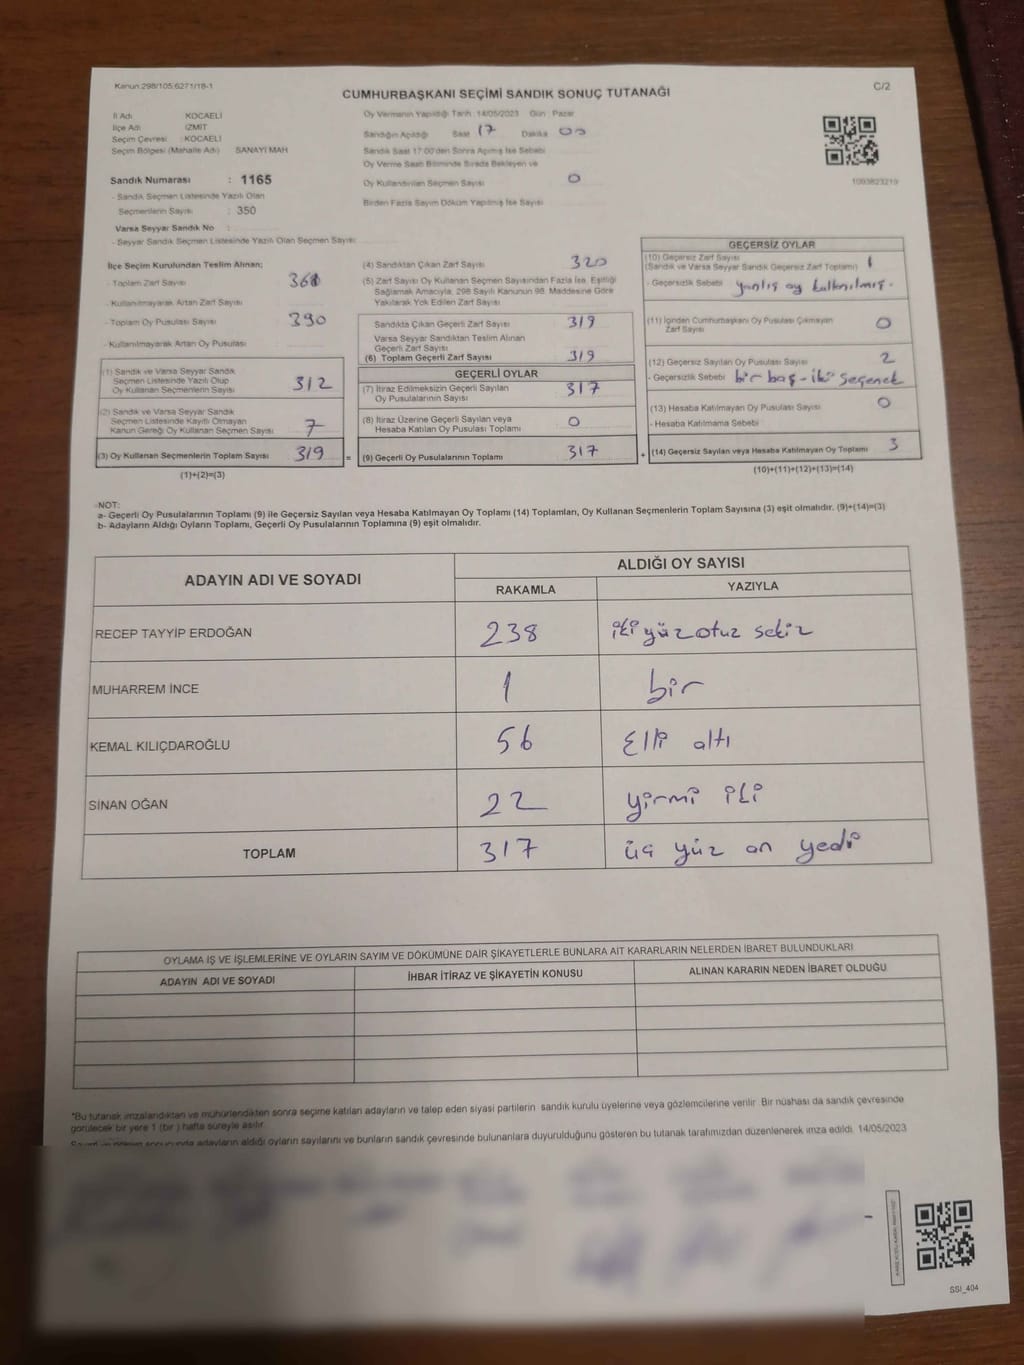 Kanun:298/105;6271/18-1
CUMHURBAŞKANI SEÇİMİ SANDIK SONUÇ TUTANAĞI
C/2
İl Adı KOCAELİ
İlçe Adı İZMİT
Seçim Çevresi : KOCAELİ
Seçim Bölgesi (Mahalle Adı) SANAYİ MAH
Sandık Numarası : 1165
- Sandık Seçmen Listesinde Yazılı Olan
Seçmenlerin Sayısı : 350
Varsa Seyyar Sandık No :
- Seyyar Sandık Seçmen Listesinde Yazılı Olan Seçmen Sayısı
Oy Vermenin Yapıldığı Tarih: 14/05/2023 Gün: Pazar
Sandığın Açıldığı Saat 17 Dakika 00
Sandık Saat 17:00'den Sonra Açılmış İse Sebebi
Oy Verme Saati Bitiminde Sırada Bekleyen ve
Oy Kullandırılan Seçmen Sayısı 0
Birden Fazla Sayım Döküm Yapılmış İse Sayısı
1093823219
İlçe Seçim Kurulundan Teslim Alınan;
- Toplam Zarf Sayısı 360
- Kullanılmayarak Artan Zarf Sayısı
- Toplam Oy Pusulası Sayısı 390
- Kullanılmayarak Artan Oy Pusulası
(1) Sandık ve Varsa Seyyar Sandık
Seçmen Listesinde Yazılı Olup
Oy Kullanan Seçmenlerin Sayısı 312
(2) Sandık ve Varsa Seyyar Sandık
Seçmen Listesinde Kayıtlı Olmayan
Kanun Gereği Oy Kullanan Seçmen Sayısı 7
(3) Oy Kullanan Seçmenlerin Toplam Sayısı 319 =
(1)+(2)=(3)
(4) Sandıktan Çıkan Zarf Sayısı 320
(5) Zarf Sayısı Oy Kullanan Seçmen Sayısından Fazla İse, Eşitliği
Sağlamak Amacıyla, 298 Sayılı Kanunun 98. Maddesine Göre
Yakılarak Yok Edilen Zarf Sayısı
Sandıkta Çıkan Geçerli Zarf Sayısı 319
Varsa Seyyar Sandıktan Teslim Alınan
Geçerli Zarf Sayısı
(6) Toplam Geçerli Zarf Sayısı 319
GEÇERLİ OYLAR
(7) İtiraz Edilmeksizin Geçerli Sayılan
Oy Pusulalarının Sayısı 317
(8) İtiraz Üzerine Geçerli Sayılan veya
Hesaba Katılan Oy Pusulası Toplamı 0
(9) Geçerli Oy Pusulalarının Toplamı 317 +
GEÇERSİZ OYLAR
(10) Geçersiz Zarf Sayısı
(Sandık ve Varsa Seyyar Sandık Geçersiz Zarf Toplamı) 1
- Geçersizlik Sebebi yanlış oy kullanılmış.
(11) İçinden Cumhurbaşkanı Oy Pusulası Çıkmayan
Zarf Sayısı 0
(12) Geçersiz Sayılan Oy Pusulası Sayısı 2
- Geçersizlik Sebebi bir boş - iki seçenek
(13) Hesaba Katılmayan Oy Pusulası Sayısı 0
- Hesaba Katılmama Sebebi
(14) Geçersiz Sayılan veya Hesaba Katılmayan Oy Toplamı 3
(10)+(11)+(12)+(13)=(14)
NOT:
a- Geçerli Oy Pusulalarının Toplamı (9) ile Geçersiz Sayılan veya Hesaba Katılmayan Oy Toplamı (14) Toplamları, Oy Kullanan Seçmenlerin Toplam Sayısına (3) eşit olmalıdır. (9)+(14)=(3)
b- Adayların Aldığı Oyların Toplamı, Geçerli Oy Pusulalarının Toplamına (9) eşit olmalıdır.
ADAYIN ADI VE SOYADI
ALDIĞI OY SAYISI
RAKAMLA YAZIYLA
RECEP TAYYİP ERDOĞAN 238 iki yüz otuz sekiz
MUHARREM İNCE 1 bir
KEMAL KILIÇDAROĞLU 56 Elli altı
SİNAN OĞAN 22 yirmi iki
TOPLAM 317 üç yüz on yedi
OYLAMA İŞ VE İŞLEMLERİNE VE OYLARIN SAYIM VE DÖKÜMÜNE DAİR ŞİKAYETLERLE BUNLARA AİT KARARLARIN NELERDEN İBARET BULUNDUKLARI
ADAYIN ADI VE SOYADI İHBAR İTİRAZ VE ŞİKAYETİN KONUSU ALINAN KARARIN NEDEN İBARET OLDUĞU
*Bu tutanak imzalandıktan ve mühürlendikten sonra seçime katılan adayların ve talep eden siyasi partilerin sandık kurulu üyelerine veya gözlemcilerine verilir. Bir nüshası da sandık çevresinde
görülecek bir yere 1 (bir) hafta süreyle asılır.
adayların aldığı oyların sayılarını ve bunların sandık çevresinde bulunanlara duyurulduğunu gösteren bu tutanak tarafımızdan düzenlenerek imza edildi. 14/05/2023
SSİ_404